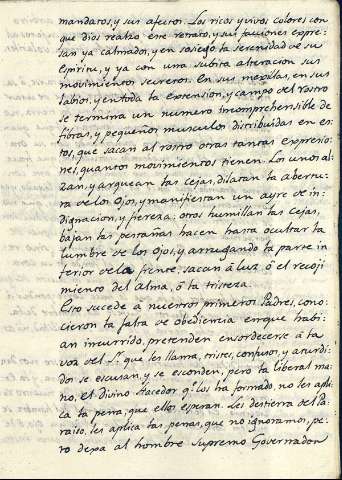 mandatos, y sus afectos. Los ricos y vivos colores con
que dios realzo este retrato, y sus facciones expre-
san ya calmados, y en sosiego la serenidad de su
Espiritu, y ya con una subita alteracion sus
movimientos secretos. En sus mexillas, en sus
labios, y en toda la extension, y campo del rostro
se termina un numero incomprehensible de
fibras, y pequeños musculos distribuidas en es-
tos, que sacan al rostro otras tantas expresio-
nes, quantos movimientos tienen. Los unos al-
zan, y arquean las cejas, dilatan la abertu-
ra de los ojos, y manifiestan un ayre de in-
dignacion, y fiereza: otros humillan las cejas,
bajan las pestañas hacen hasta ocultar la
lumbre de los ojos, y arrugando la parte in-
ferior de la frente, sacan â luz ô el recoji-
miento del Alma, ô la tristeza.
Esto sucede â nuestros primeros Padres, cono-
cieron la falta de obediencia en que habi-
an incurrido, pretenden ensordecerse â la
voz del Sr. que les llama, tristes, confusos, y aturdi-
dos se escusan, y se esconden, pero la liberal ma-
no, el Divino Hacedor qe. los ha formado, no les apli-
ca la pena, que ellos esperan. Les destierra del Pa-
raiso, les aplica las penas, que no ignoramos, pe-
ro dexa al hombre Supremo Governador